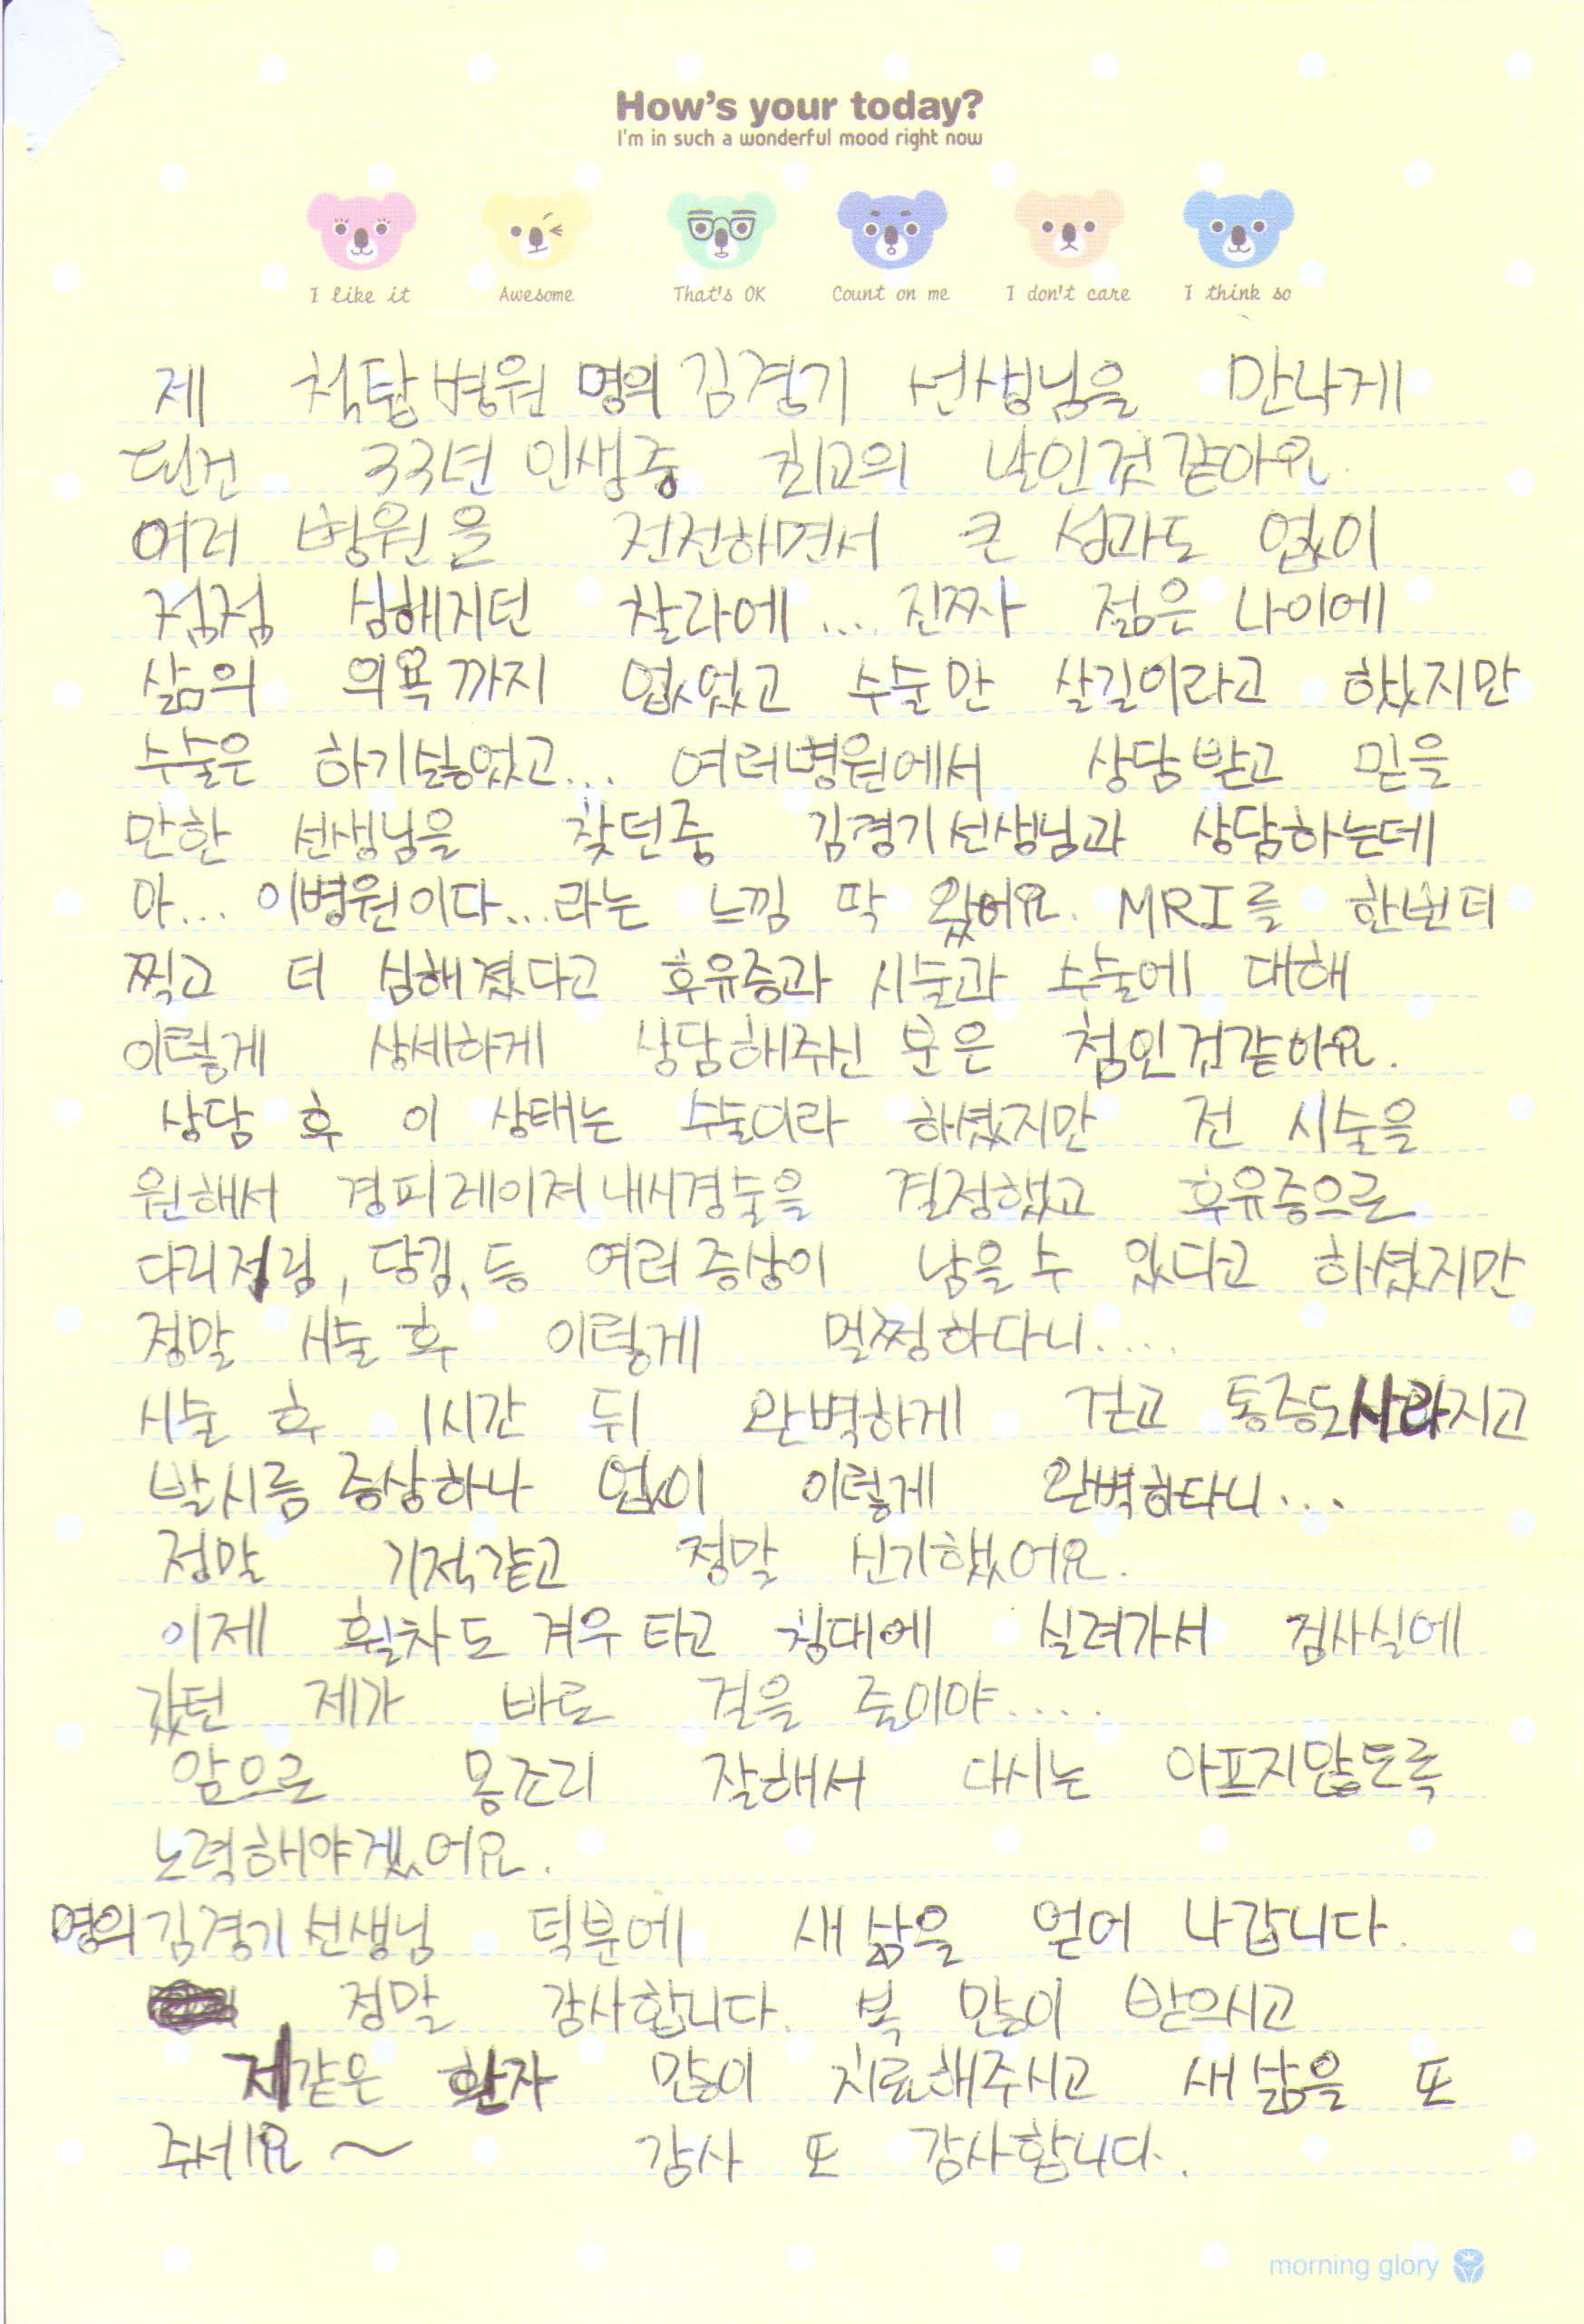 How's your today?
I'm in such a wonderful mood right now
I like it Awesome That's OK Count on me I don't care I think so
제 척탑병원 명의 김경기 선생님을 만나게
된건 33년 인생중 최고의 날인것같아요.
여러 병원을 전전하면서 큰 성과도 없이
점점 심해지던 찰라에... 진짜 젊은 나이에
삶의 의욕까지 없었고 수술만 살길이라고 했지만
수술은 하기싫었고... 여러병원에서 상담받고 믿을
만한 선생님을 찾던중 김경기선생님과 상담하는데
아... 이병원이다...라는 느낌 딱 왔어요. MRI를 한번더
찍고 더 심해졌다고 후유증과 시술과 수술에 대해
이렇게 상세하게 상담해주신 분은 첨인것같아요.
상담 후 이 상태는 수술이라 하셨지만 전 시술을
원해서 경피레이져내시경술을 결정했고 후유증으로
다리저림, 당김, 등 여러증상이 남을수 있다고 하셨지만
정말 시술후 이렇게 멀쩡하다니....
시술 후 1시간 뒤 완벽하게 걷고 통증도사라지고
발시름 증상하나 없이 이렇게 완벽하다니...
정말 기적같고 정말 신기했어요.
이제 휠차도 겨우 타고 침대에 실려가서 검사실에
갔던 제가 바로 걸을 줄이야....
앞으로 몸조리 잘해서 다시는 아프지않토록
노력해야겠어요.
명의김경기선생님 덕분에 새삶을 얻어 나갑니다.
정말 감사합니다. 복 많이 받으시고
저같은 환자 많이 치료해주시고 새삶을 또
주세요~ 감사 또 감사합니다.
morning glory